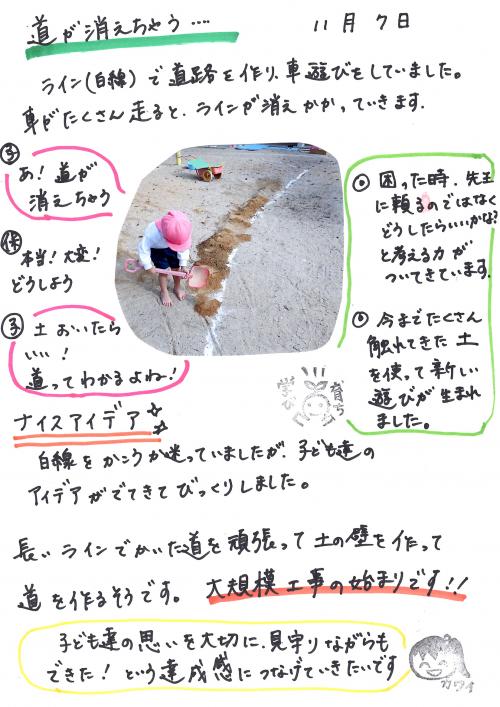 道が消えちゃう‥‥
11月7日
ライン(白線)で道路を作り、車遊びをしていました。
車がたくさん走ると、ラインが消えかかっていきます。
子
あ！道が
消えちゃう
保
本当！大変！
どうしよう
子
土おいたら
いい！
道ってわかるよね！
◎困った時、先生
に頼るのではなく
どうしたらいいかな？
と考える力が
ついてきています。
◎今までたくさん
触れてきた土
を使って新しい
遊びが生まれ
ました。
学び
育ち
ナイスアイデア
白線をかこうか迷っていましたが、子ども達の
アイデアがでてきてびっくりしました。
長いラインでかいた道を頑張って土の壁を作って
道を作るそうです。大規模工事の始まりです!!
子ども達の思いを大切に、見守りながらも
できた！という達成感につなげていきたいです
カワイ